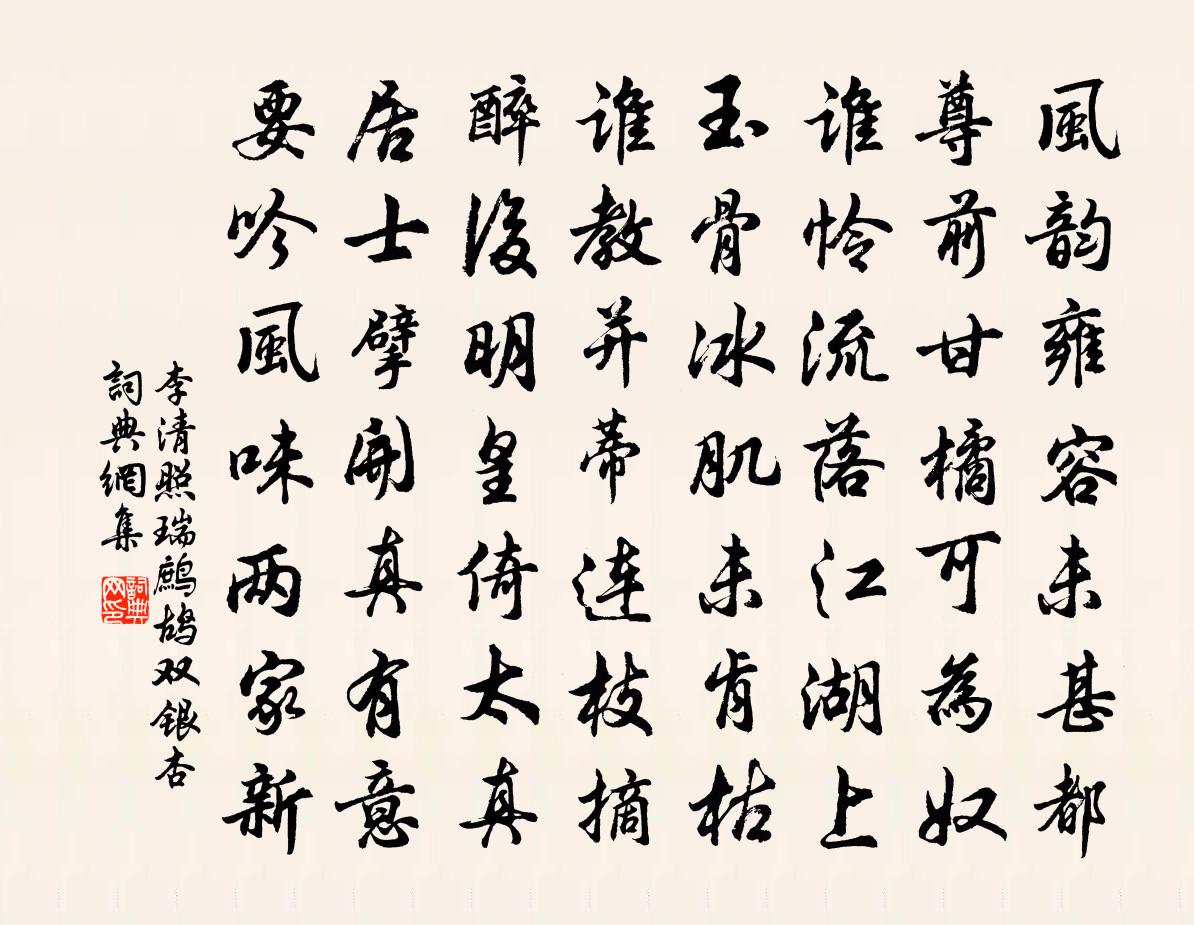 風韵雍容未甚都
尊前甘橘可為奴
誰怜流落江湖上
玉骨冰肌未肯枯
誰教并蒂連枝摘
醉後明皇倚太真
居士擘開真有意
要吟風味两家新
李清照瑞鷓鴣双银杏
詞典網集
詞典网印